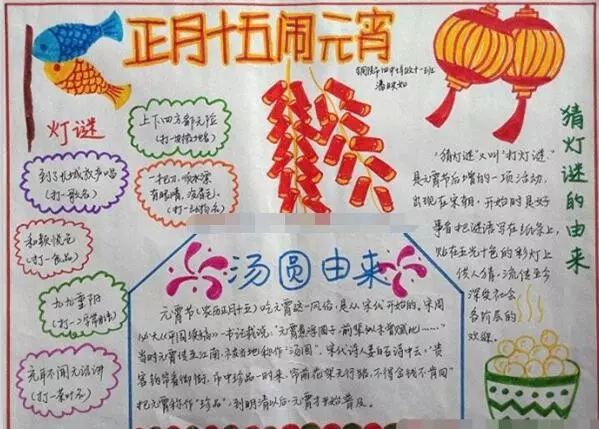 正月十五闹元宵
灯谜
上下四方都无险
到了长城放声唱
(打一歌名)
一把刀,顺水漂
有眼睛,没眉毛。
(打一动物名)
和颜悦色
(打一食品)
九九重阳
(打一茶叶名)
猜灯谜的由来
"猜灯谜"又叫"打灯谜"
是元宵节后增的一项活动,
出现在宋朝。开始时是好
事者把谜语写在纸条上,
贴在五光十色的彩灯上
供人猜。流传至今
深受社会
各阶层的
欢迎。
汤圆由来
元宵节(农历正月十五)吃元宵这一风俗,是从宋代开始的。宋周
必大《平园续稿》一书记载说,"元宵煮浮圆子,前辈似未曾赋此……"
当时元宵传至江南,不少地方称作"汤圆"。宋代诗人姜白石诗中云:"贵
客钩帘看御街,市中珍品一时来,帘前花架无行路,不得金钱不肯回"
把元宵称作"珍品",到明清以后,元宵才开始普及。